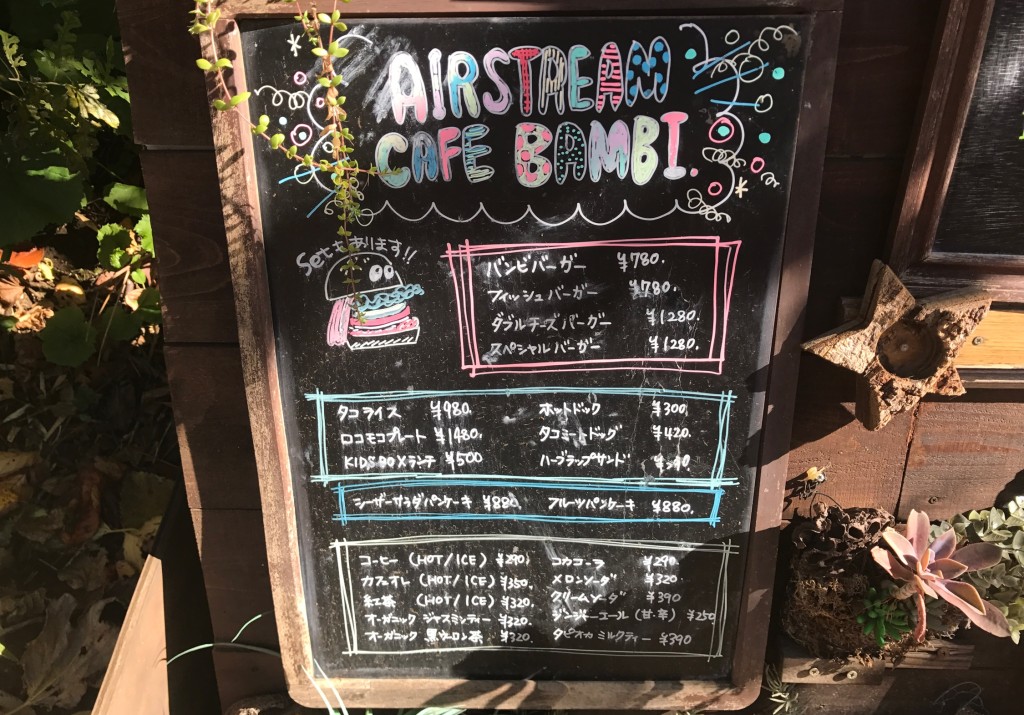 AIRSTREAM
CAFE BAMBI.
Setもあります!!
バンビバーガー ¥780.
フィッシュバーガー ¥780.
ダブルチーズバーガー ¥1280.
スペシャルバーガー ¥1280.
タコライス ¥980. ホットドック ¥300.
ロコモコプレート ¥1480. タコミートドッグ ¥420.
KIDS BOXランチ ¥500 ハーブラップサンド
シーザーサラダパンケーキ ¥880. フルーツパンケーキ ¥880.
コーヒー (HOT/ICE) ¥290. コカコーラ ¥290.
カフェオレ (HOT/ICE) ¥350. メロンソーダ ¥320.
紅茶 (HOT/ICE) ¥320. クリームソーダ ¥390
オーガニック ジャスミンティー ¥320. ジンジャーエール (甘・辛) ¥250
オーガニック 黒ウーロン茶 ¥320. タピオカ ミルクティー ¥390